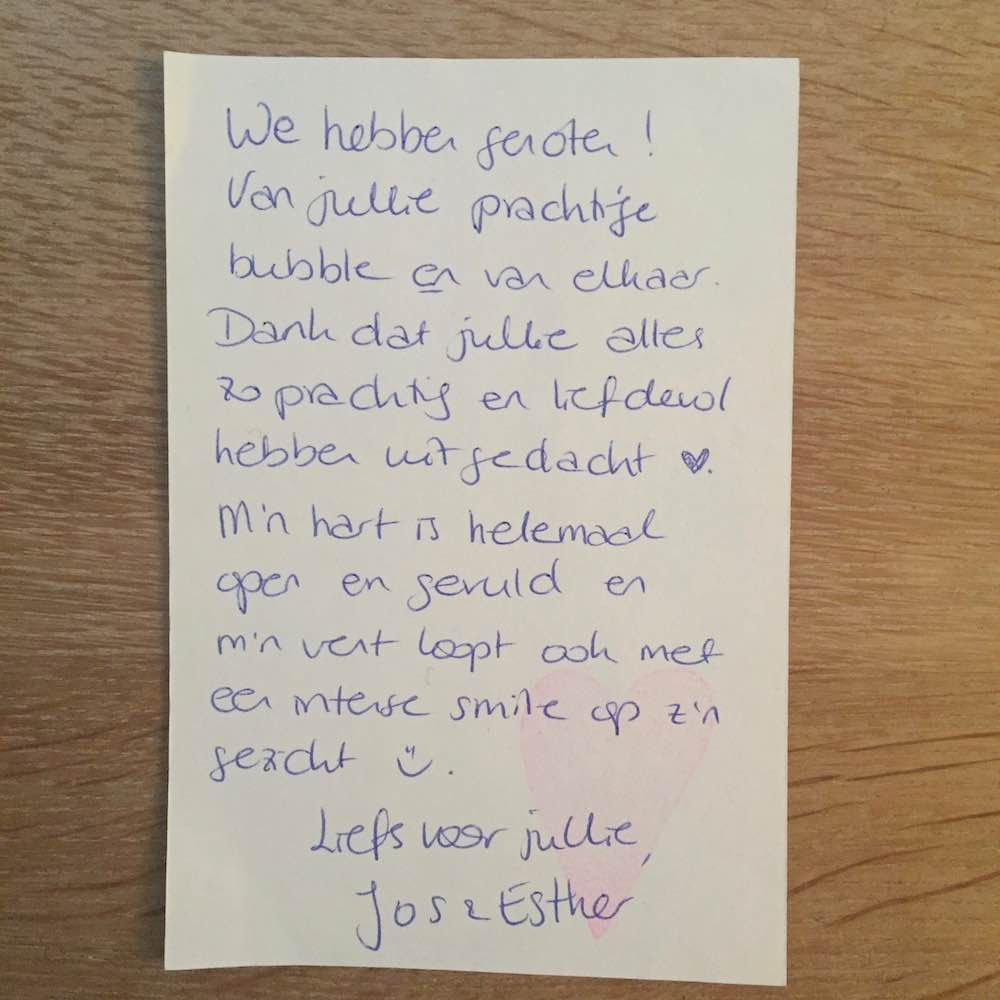 We hebben genoten!
Van jullie prachtige
bubble en van elkaar.
Dank dat jullie alles
zo prachtig en liefdevol
hebben uitgedacht ♥.
M'n hart is helemaal
open en gevuld en
m'n vent loopt ook met
een intense smile op z'n
gezicht ü.
Liefs voor jullie,
Jos & Esther